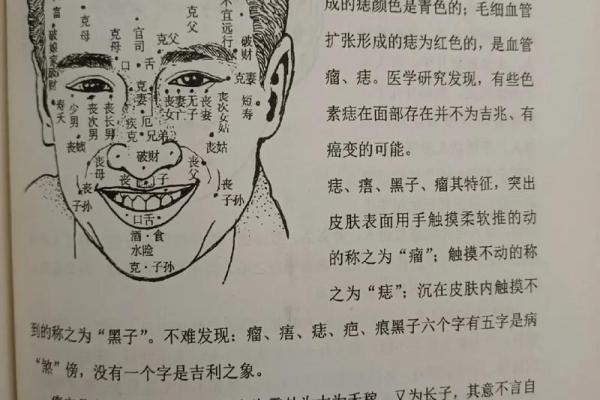 富
破娘家破财
克母
克母
官司
口舌
克父
克父
不宜远行
破财
克妻
克妻
丧女
妻亡
无子
丧妻
丧次女姑
短寿
寿夭
少男
丧次男
丧长男
疾克
厄
兄弟
丧姨
丧姑
破财
丧母
丧父
丧子孙
丧子孙
子
口舌
酒·食
水险
克·子孙
成的痣颜色是青色的；毛细血管
扩张形成的痣为红色的，是血管
瘤、痣。医学研究发现，有些色
素痣在面部存在并不为吉兆、有
癌变的可能。
痣、痦、黑子、瘤其特征，突出
皮肤表面用手触摸柔软推的动
的称之为“瘤”；触摸不动的称
之为“痣”；沉在皮肤内触摸不
到的称之为“黑子”。不难发现：瘤、痦、痣、疤、痕黑子六个字有五字是病
“煞”傍，没有一个字是吉利之象。
又为长子，其意不言自